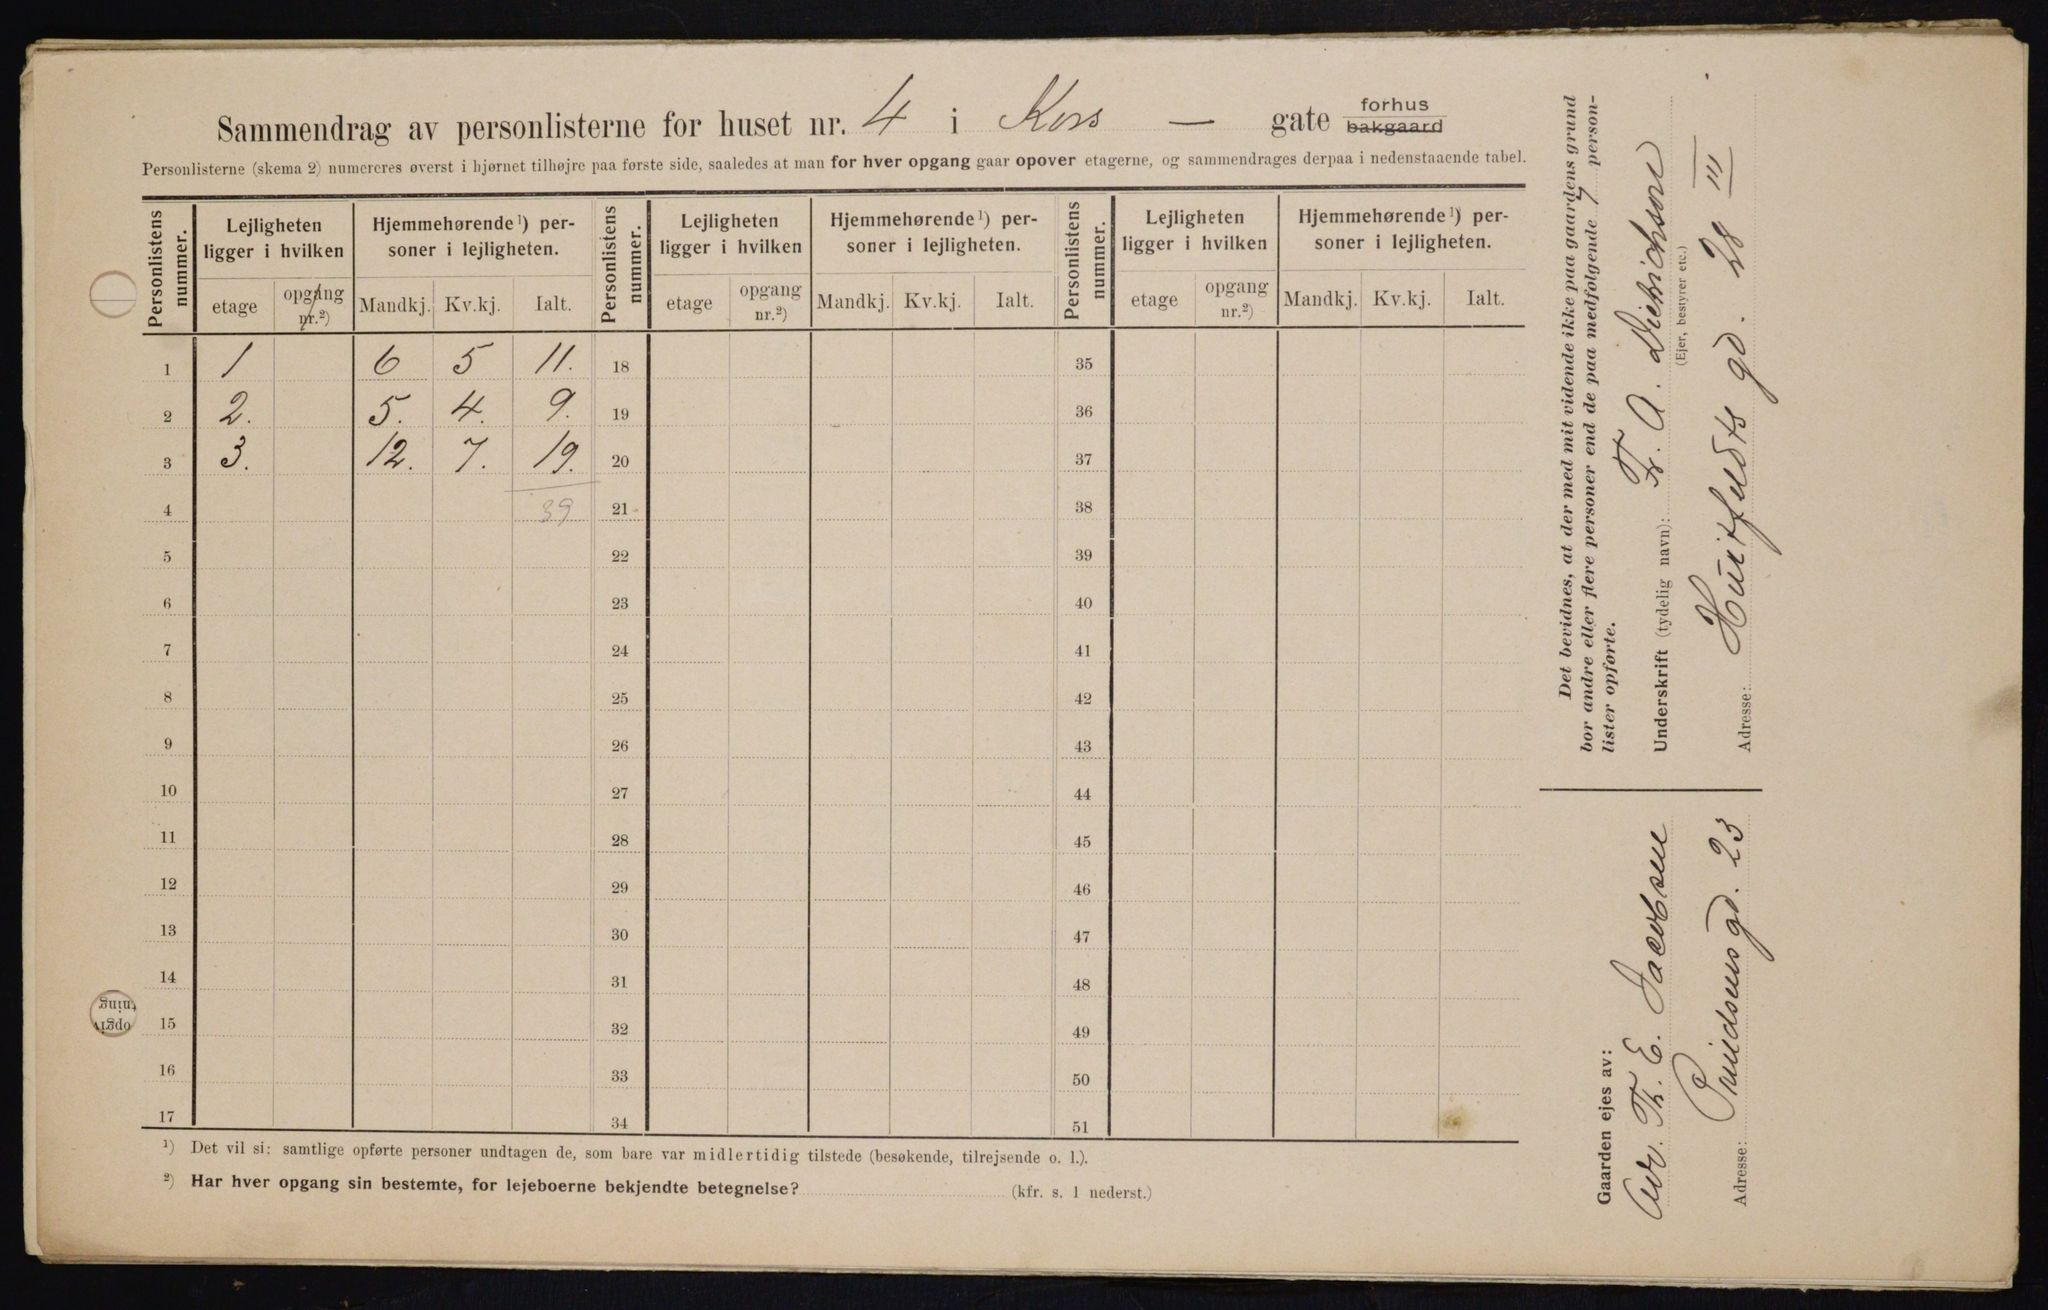 Sammendrag av personlisterne for huset nr. 4 i Kors — gate forhus bakgaard
Personlisterne (skema 2) numereres øverst i hjørnet tilhøjre paa første side, saaledes at man for hver opgang gaar opover etagerne, og sammendrages derpaa i nedenstaaende tabel.
Personlistens nummer. Lejligheten ligger i hvilken Hjemmehørende ¹) personer i lejligheten. Personlistens nummer. Lejligheten ligger i hvilken Hjemmehørende ¹) personer i lejligheten. Personlistens nummer. Lejligheten ligger i hvilken Hjemmehørende ¹) personer i lejligheten.
etage opgang nr.²) Mandkj. Kv.kj. Ialt. etage opgang nr.²) Mandkj. Kv.kj. Ialt. etage opgang nr.²) Mandkj. Kv.kj. Ialt.
1 1 6 5 11. 18 35
2 2. 5. 4. 9. 19 36
3 3. 12. 7. 19. 20 37
4 39 21 38
5 22 39
6 23 40
7 24 41
8 25 42
9 26 43
10 27 44
11 28 45
12 29 46
13 30 47
14 31 48
15 32 49
16 33 50
17 34 51
¹) Det vil si: samtlige opførte personer undtagen de, som bare var midlertidig tilstede (besøkende, tilrejsende o. l.).
²) Har hver opgang sin bestemte, for lejeboerne bekjendte betegnelse? (kfr. s. 1 nederst.)
Det bevidnes, at der med mit vidende ikke paa gaardens grund
bor andre eller flere personer end de paa medfølgende 7 person-
lister opførte.
Underskrift (tydelig navn): Fr. A. Dietrichson
(Ejer, bestyrer etc.)
Adresse: Huitfeldts gd. 28 III
Gaarden ejes av:
Th. E. Jacobsen
Adresse: gd. 23